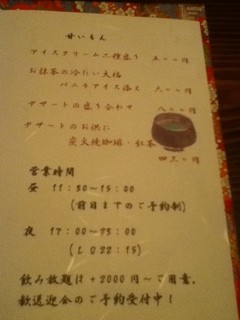 甘いもん
アイスクリーム二種盛り 五〇〇円
お抹茶の冷たい大福
バニラアイス添え 六〇〇円
デザートの盛り合わせ 八〇〇円
デザートのお供に
炭火焼珈琲・紅茶
四三〇円
営業時間
昼 11:30~15:00
(前日までのご予約制)
夜 17:00~23:00
(LO22:15)
飲み放題は+2000円~ご用意。
歓送迎会のご予約受付中!